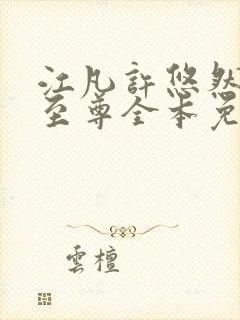 江凡許悠然
至尊全本免
雲檀